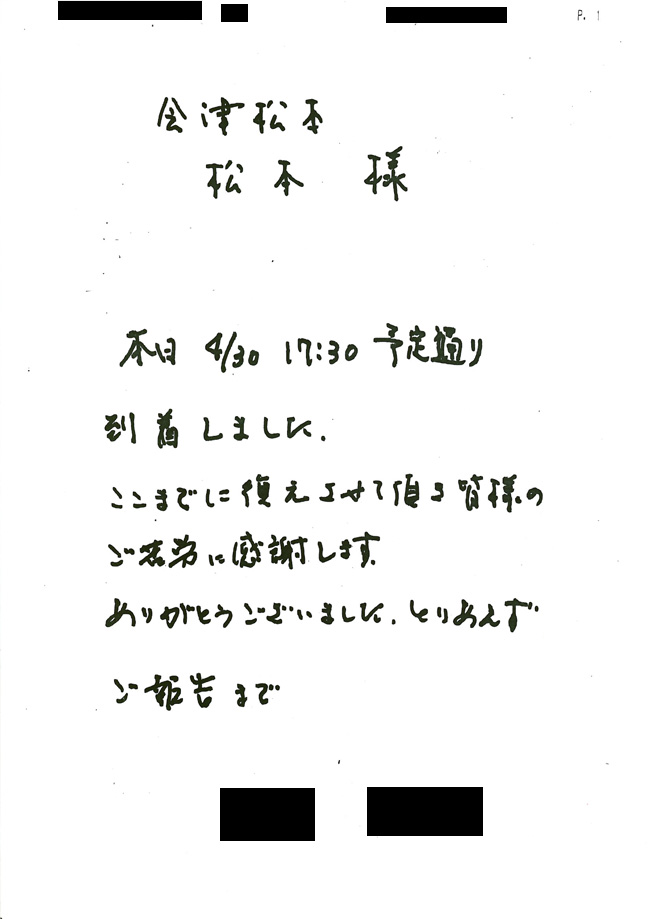 P. 1
会津松本
松本 様
本日 4/30 17:30 予定通り
到着しました.
ここまでに復えさせて頂き皆様の
ご苦労に感謝します.
ありがとうございました. とりあえず
ご報告まで